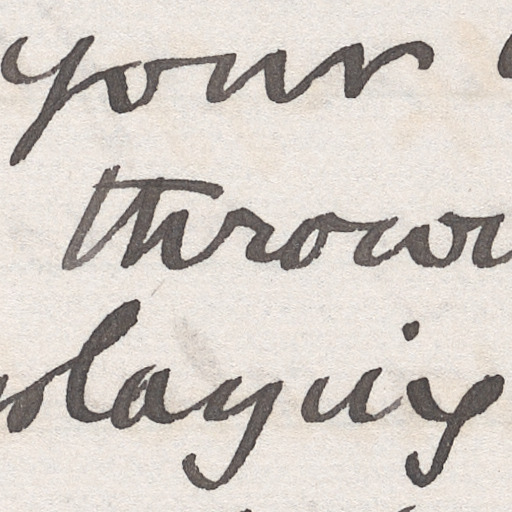 your
thrown
playing